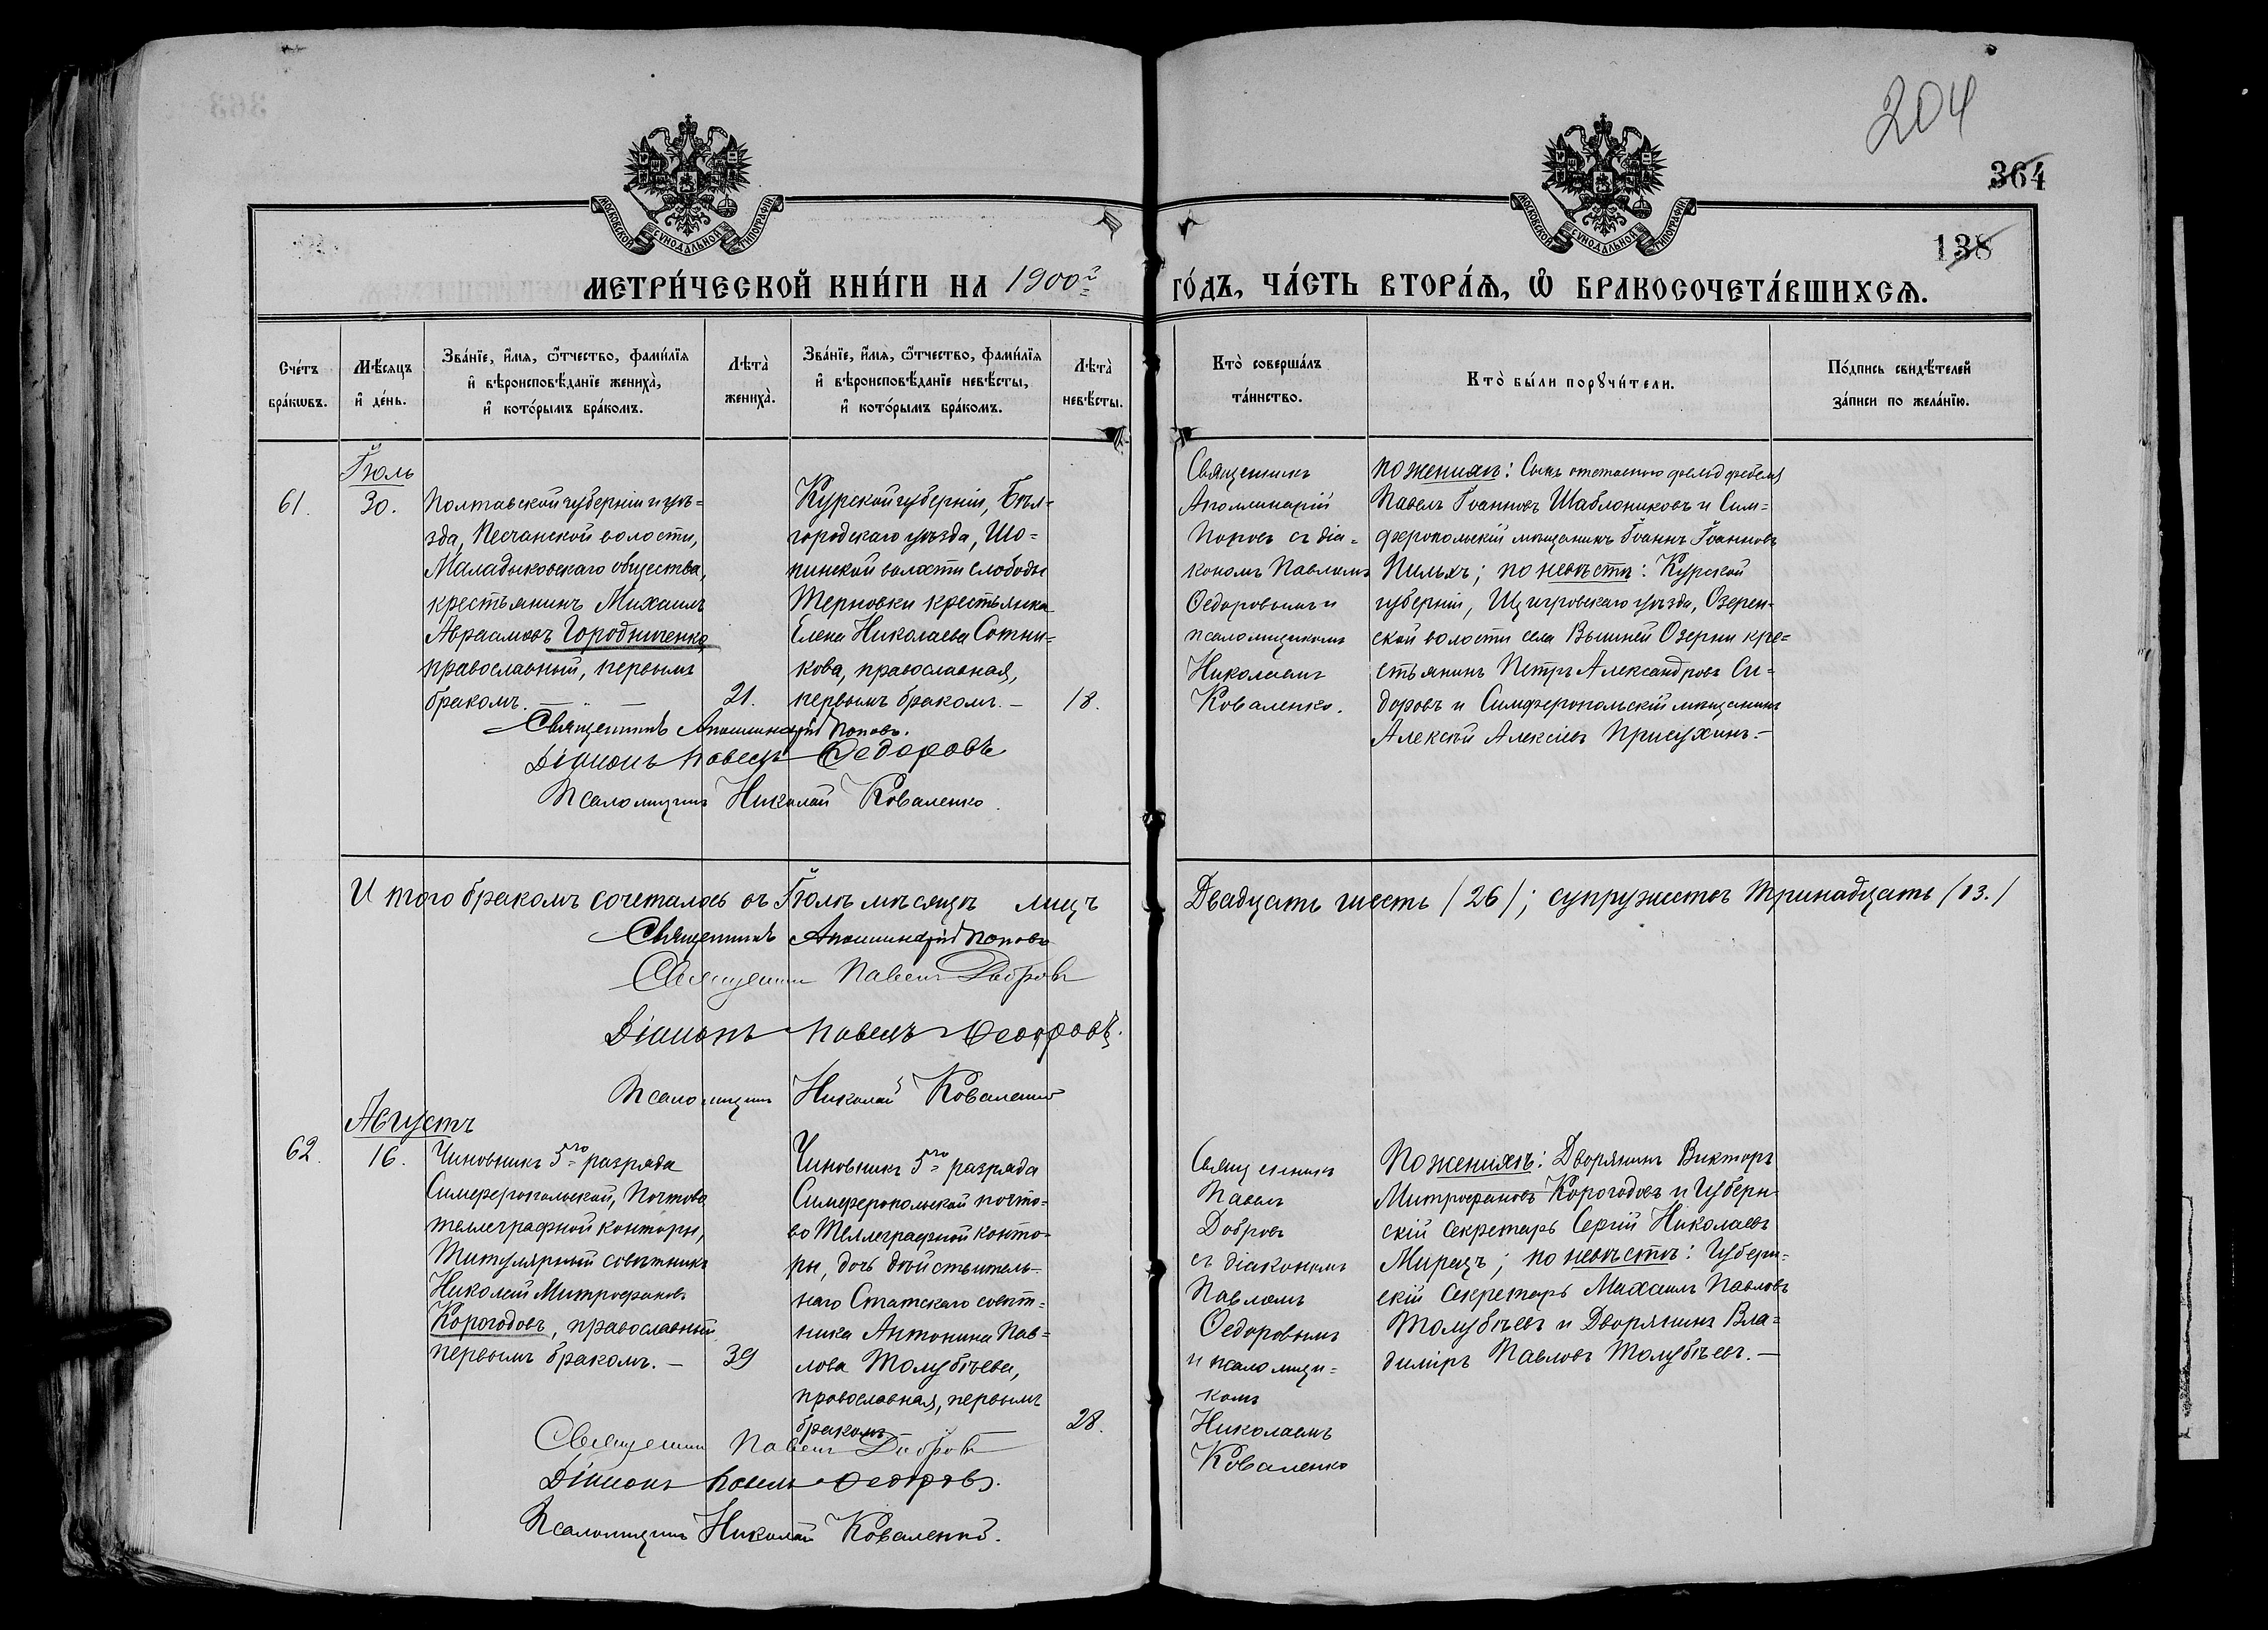 204
364
138
МОСКОВСКОЙ СѴНОДАЛЬНОЙ ТИПОГРАФІИ
МОСКОВСКОЙ СѴНОДАЛЬНОЙ ТИПОГРАФІИ
МЕТРИ́ЧЕСКОЙ КНИ́ГИ НА 1900й
ГО́ДЪ, ЧА́СТЬ ВТОРА́Ѧ, Ѽ БРАКОСОЧЕТА́ВШИХСѦ.
Сче́тъ
бра́кѡвъ.
Мѣ́сяцъ
и҆ де́нь.
Зва́нїе, и҆́мѧ, ѻ҆́тчество, фами́лїѧ
и҆ вѣроисповѣ́данїе жениха̀,
и҆ кото́рымъ бра́комъ.
Лѣта̀
жениха̀.
Зва́нїе, и҆́мѧ, ѻ҆́тчество, фами́лїѧ
и҆ вѣроисповѣ́данїе невѣ́сты,
и҆ кото́рымъ бра́комъ.
Лѣта̀
невѣ́сты.
Кто̀ соверша́лъ
та́инство.
Кто̀ бы́ли порꙋчи́тели.
По́дпись свидѣ́телей
за́писи по жела́нїю.
61.
Іюль
30.
Полтавской губерніи и уѣ=
зда, Песчанской волости,
Маладыковскаго общества,
крестьянинъ Михаилъ
Авраамовъ Городниченко,
православный, первымъ
бракомъ. —
21.
Курской губерніи, Бѣл=
городскаго уѣзда, Шо=
пинской волости слободы
Терновки крестьянка
Елена Николаева Сотни=
кова, православная,
первымъ бракомъ. —
18.
Священникъ
Аполлинарій
Поповъ съ діа=
кономъ Павломъ
Ѳедоровымъ и
псаломщикомъ
Николаемъ
Коваленко.
по женихѣ: Сынъ отставного фельдфебеля
Павелъ Іоанновъ Шаблониковъ и Сим=
феропольскій мѣщанинъ Іоаннъ Іоанновъ
Пильхъ; по невѣстѣ: Курской
губерніи, Щигровскаго уѣзда, Озерен=
ской волости села Вышней Озерни кре=
стьянинъ Петръ Александровъ Си=
доровъ и Симферопольскій мѣщанинъ
Алексѣй Алексѣевъ Присухинъ. —
Священникъ Аполлинарій Поповъ.
Діаконъ Павелъ Ѳедоровъ
Псаломщикъ Николай Коваленко.
Итого бракомъ сочеталось въ Іюлѣ мѣсяцѣ лицъ
Двадцать шесть /26/; супружествъ тринадцать /13./
Священникъ Аполлинарій Поповъ
Священникъ Павелъ Добровъ
Діаконъ Павелъ Ѳедоровъ.
Псаломщикъ Николай Коваленко
62.
Августъ
16.
Чиновникъ 5го разряда
Симферопольской, Почтово
теллеграфной конторы,
Титулярный совѣтникъ
Николай Митрофановъ
Корогодовъ, православный
первымъ бракомъ. —
39
Чиновникъ 5го разряда
Симферопольской почто=
во Теллеграфной конто=
ры, дочь дѣйствитель=
наго Статскаго совѣт=
ника Антонина Пав=
лова Толубѣева,
православная, первымъ
бракомъ
28.
Священникъ
Павелъ
Добровъ
съ діакономъ
Павломъ
Ѳедоровымъ
и псаломщи=
комъ
Николаемъ
Коваленко
По женихѣ: Дворянинъ Викторъ
Митрофановъ Корогодовъ и Губерн=
скій Секретарь Сергій Николаевъ
Мирецъ; по невѣстѣ: Губерн=
скій Секретарь Михаилъ Павловъ
Толубѣевъ и Дворянинъ Вла=
диміръ Павловъ Толубѣевъ. —
Священникъ Павелъ Добровъ
Діаконъ Павелъ Ѳедоровъ.
Псаломщикъ Николай Коваленко.